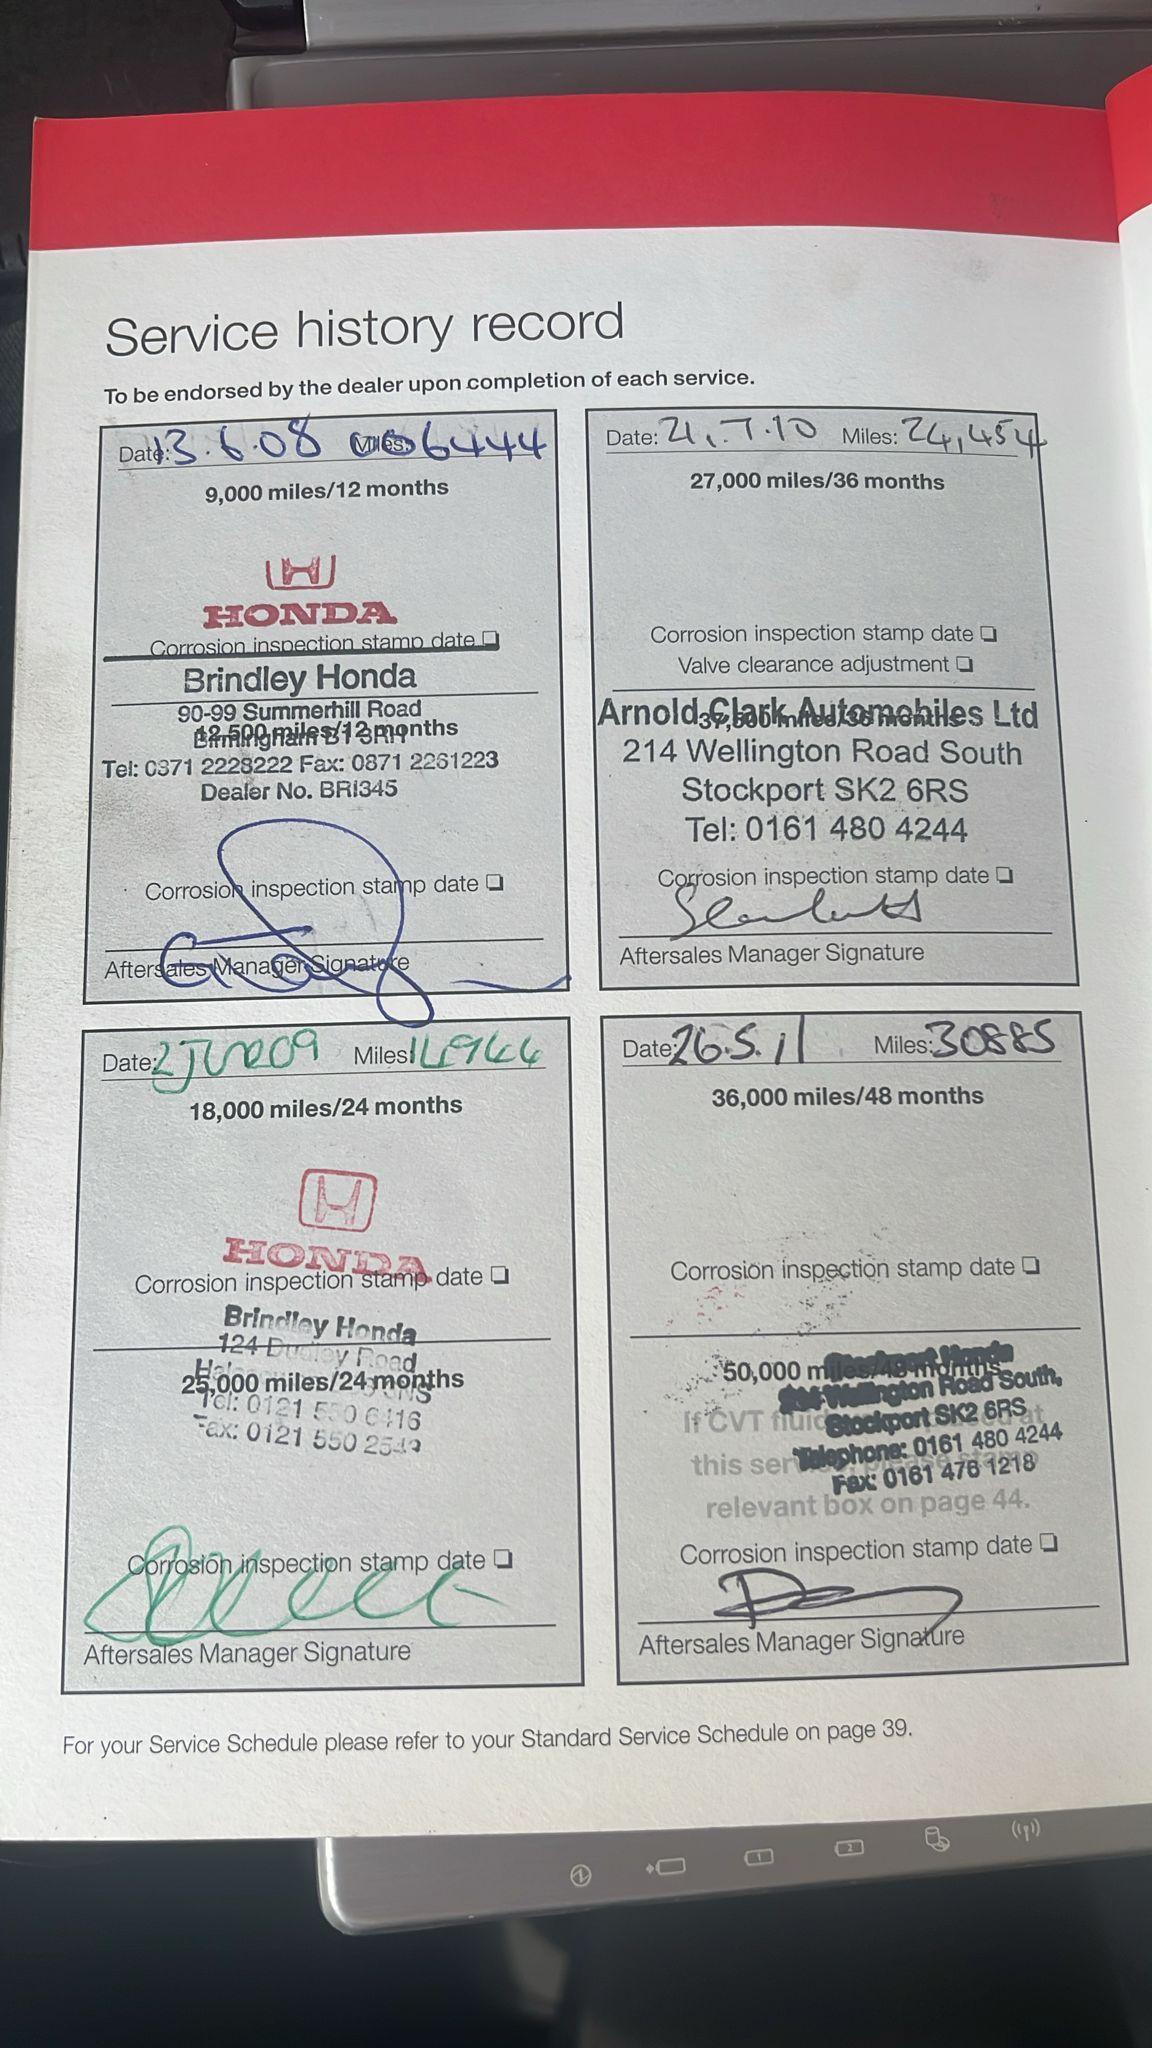 Service history record
To be endorsed by the dealer upon completion of each service.
Date: 13.6.08 Miles: 006444
9,000 miles/12 months
HONDA
Corrosion inspection stamp date
Brindley Honda
90-99 Summerhill Road
12,500 miles/12 months
Birmingham B1 3RH
Tel: 0871 2228222 Fax: 0871 2261223
Dealer No. BRI345
Corrosion inspection stamp date
Aftersales Manager Signature
Date: 21.7.10 Miles: 24,454
27,000 miles/36 months
Corrosion inspection stamp date
Valve clearance adjustment
Arnold Clark Automobiles Ltd
37,500 miles/36 months
214 Wellington Road South
Stockport SK2 6RS
Tel: 0161 480 4244
Corrosion inspection stamp date
Aftersales Manager Signature
Date: 2 JUN 09 Miles:
18,000 miles/24 months
HONDA
Corrosion inspection stamp date
Brindley Honda
124 Dudley Road
25,000 miles/24 months
Tel: 0121 550 6416
Fax: 0121 550
Corrosion inspection stamp date
Aftersales Manager Signature
Date: 26.5.11 Miles: 30885
36,000 miles/48 months
Corrosion inspection stamp date
Stockport Honda
50,000 miles/48 months
Wellington Road South,
Stockport SK2 6RS
If CVT fluid at
Telephone: 0161 480 4244
this
Fax: 0161 476 1218
relevant box on page 44.
Corrosion inspection stamp date
Aftersales Manager Signature
For your Service Schedule please refer to your Standard Service Schedule on page 39.